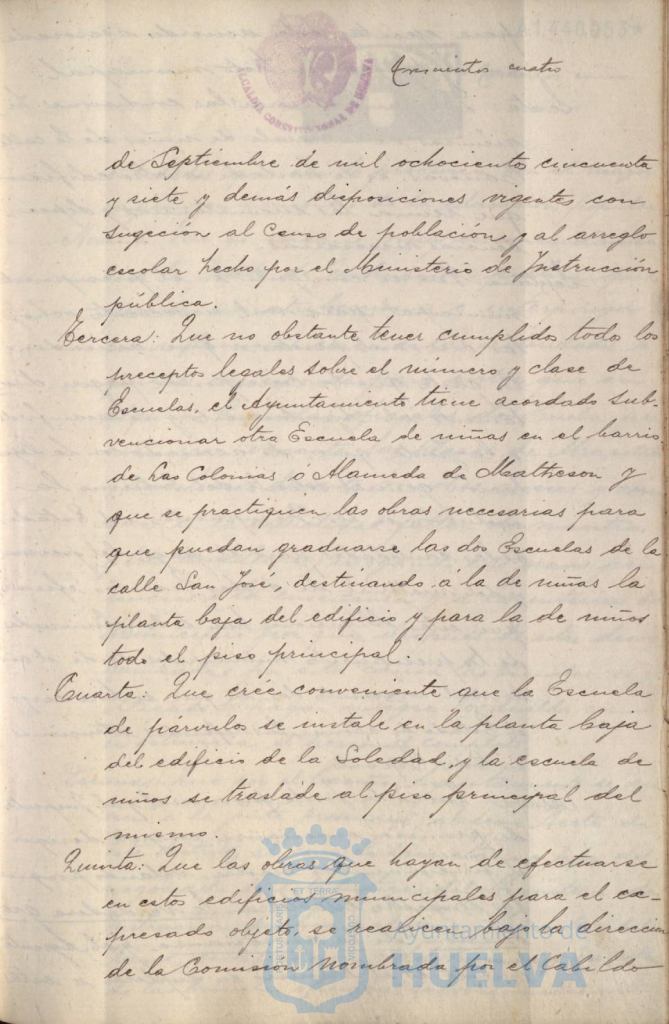 ALCALDIA CONSTITUCIONAL DE HUELVA
Trescientos cuatro
de Septiembre de mil ochociento cincuenta
y siete y demás disposiciones vigentes con
sugeción al Censo de población y al arreglo
escolar hecho por el Ministerio de Instrucción
pública.
Tercera: Que no obstante tener cumplido todo los
preceptos legales sobre el número y clase de
Escuelas, el Ayuntamiento tiene acordado sub-
vencionar otra Escuela de niñas en el barrio
de Las Colonias ó Alameda de Matheson y
que se practiquen las obras necesarias para
que puedan graduarse las dos Escuelas de la
calle San José, destinando á la de niñas la
planta baja del edificio y para la de niños
todo el piso principal.
Cuarta: Que crée conveniente que la Escuela
de párvulos se instale en la planta baja
del edificio de la Soledad, y la escuela de
niños se traslade al piso principal del
mismo.
Quinta: Que las obras que hayan de efectuarse
en estos edificios municipales para el ex-
presado objeto, se realicen bajo la direccion
de la Comisión nombrada por el Cabildo
Ayuntamiento de
HUELVA